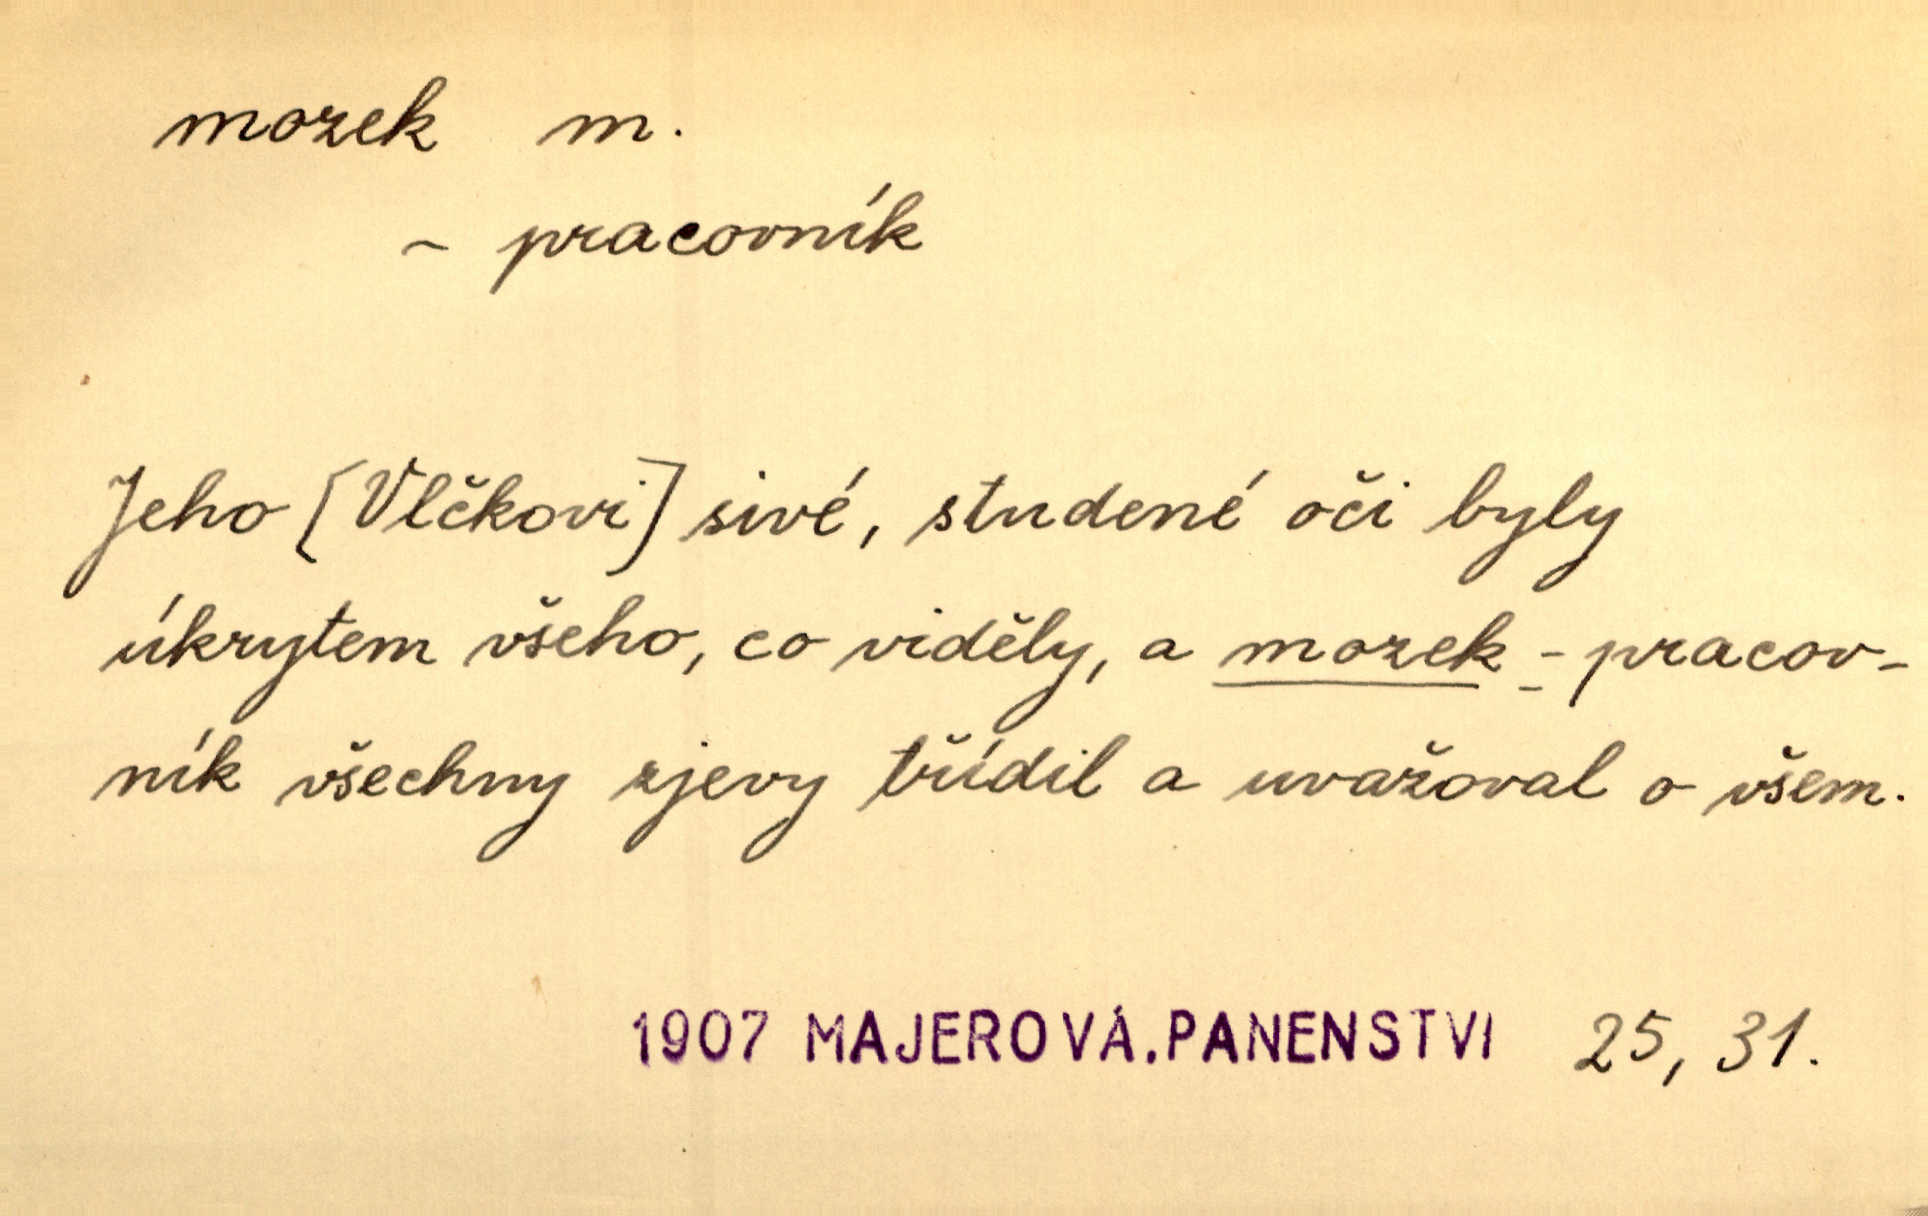 mozek m.
~ pracovník
Jeho [Vlčkovi] sivé, studené oči byly
úkrytem všeho, co viděly, a mozek - pracov-
ník všechny zjevy třídil a uvažoval o všem.
1907 MAJEROVÁ.PANENSTVI 25, 31.